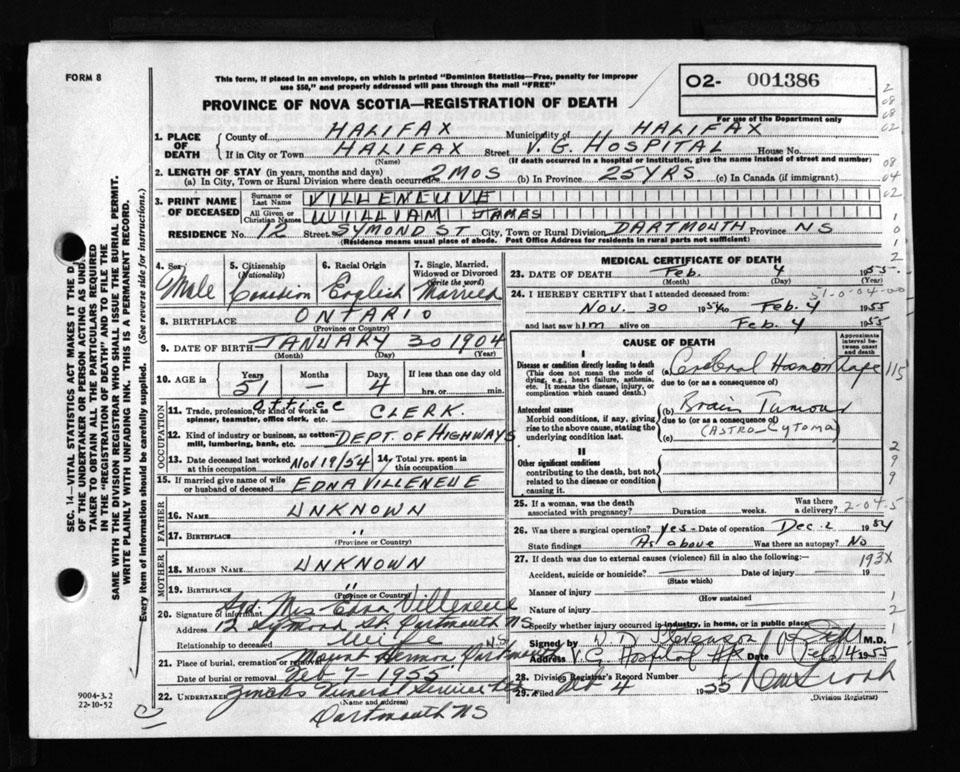 FORM 8
This form, if placed in an envelope, on which is printed "Dominion Statistics—Free, penalty for improper
use $50," and properly addressed will pass through the mail "FREE"
PROVINCE OF NOVA SCOTIA—REGISTRATION OF DEATH
02- 001386
For use of the Department only
1. PLACE OF DEATH County of HALIFAX Municipality of HALIFAX
If in City or Town HALIFAX Street V. G. HOSPITAL House No.
(Name) (If death occurred in a hospital or institution, give the name instead of street and number)
2. LENGTH OF STAY (in years, months and days)
(a) In City, Town or Rural Division where death occurred 2 MOS (b) In Province 25 YRS (c) In Canada (if immigrant)
3. PRINT NAME OF DECEASED Surname or Last Name VILLENEUVE
All Given or Christian Names WILLIAM JAMES
RESIDENCE No. 12 Street SYMOND ST City, Town or Rural Division DARTMOUTH Province NS
(Residence means usual place of abode. Post Office Address for residents in rural parts not sufficient)
4. Sex Male
5. Citizenship (Nationality)
6. Racial Origin English
7. Single, Married, Widowed or Divorced (write the word) Married
8. BIRTHPLACE ONTARIO
(Province or Country)
9. DATE OF BIRTH JANUARY 30 1904
(Month) (Day) (Year)
10. AGE in Years 51 Months — Days 4 If less than one day old
hrs. or min.
OCCUPATION
11. Trade, profession, or kind of work as spinner, teamster, office clerk, etc. office CLERK.
12. Kind of industry or business, as cotton-mill, lumbering, bank, etc. DEPT. OF HIGHWAYS
13. Date deceased last worked at this occupation Nov 19/54 14. Total yrs. spent in this occupation
15. If married give name of wife or husband of deceased EDNA VILLENEUE
FATHER
16. NAME UNKNOWN
17. BIRTHPLACE "
(Province or Country)
MOTHER
18. MAIDEN NAME UNKNOWN
19. BIRTHPLACE "
(Province or Country)
20. Signature of informant Sgd. Mrs Edna Villeneue
Address 12 Symond St Dartmouth NS
Relationship to deceased Wife
21. Place of burial, cremation or removal Mount Hermon, Dartmouth N.S.
Date of burial or removal Feb 7- 1955
22. UNDERTAKER Zinck's Funeral Service Ltd
(Name and address)
Dartmouth NS
9004-3.2
22-10-52
MEDICAL CERTIFICATE OF DEATH
23. DATE OF DEATH Feb. 4 1955-
(Month) (Day) (Year)
24. I HEREBY CERTIFY that I attended deceased from:
Nov. 30 1954 to Feb. 4 1955
and last saw him alive on Feb. 4 1955
CAUSE OF DEATH
Approximate interval between onset and death
I
Disease or condition directly leading to death
(This does not mean the mode of dying, e.g., heart failure, asthenia, etc. It means the disease, injury, or complication which caused death.)
(a) Cerebral
due to (or as a consequence of)
Antecedent causes
Morbid conditions, if any, giving rise to the above cause, stating the underlying condition last.
(b) Brain Tumour
due to (or as a consequence of)
(ASTROCYTOMA)
(c)
II
Other significant conditions
contributing to the death, but not related to the disease or condition causing it.
25. If a woman, was the death associated with pregnancy? Duration weeks. Was there a delivery?
26. Was there a surgical operation? Yes - Date of operation Dec. 2 1954
State findings As above Was there an autopsy? No
27. If death was due to external causes (violence) fill in also the following:—
Accident, suicide or homicide? Date of injury 19
(State which)
Manner of injury
(How sustained)
Nature of injury
Specify whether injury occurred in industry, in home, or in public place
Signed by W. D. Stevenson M.D.
Address V. G. Hospital Hfx Date Feb 4 1955
28. Division Registrar's Record Number
29. Filed Feb 4 1955
(Division Registrar)
SEC. 14—VITAL STATISTICS ACT MAKES IT THE DUTY
OF THE UNDERTAKER OR PERSON ACTING AS UNDERTAKER TO OBTAIN ALL THE PARTICULARS REQUIRED
IN THE "REGISTRATION OF DEATH" AND TO FILE THE
SAME WITH THE DIVISION REGISTRAR WHO SHALL ISSUE THE BURIAL PERMIT.
WRITE PLAINLY WITH UNFADING INK. THIS IS A PERMANENT RECORD.
Every item of information should be carefully supplied. (See reverse side for instructions.)